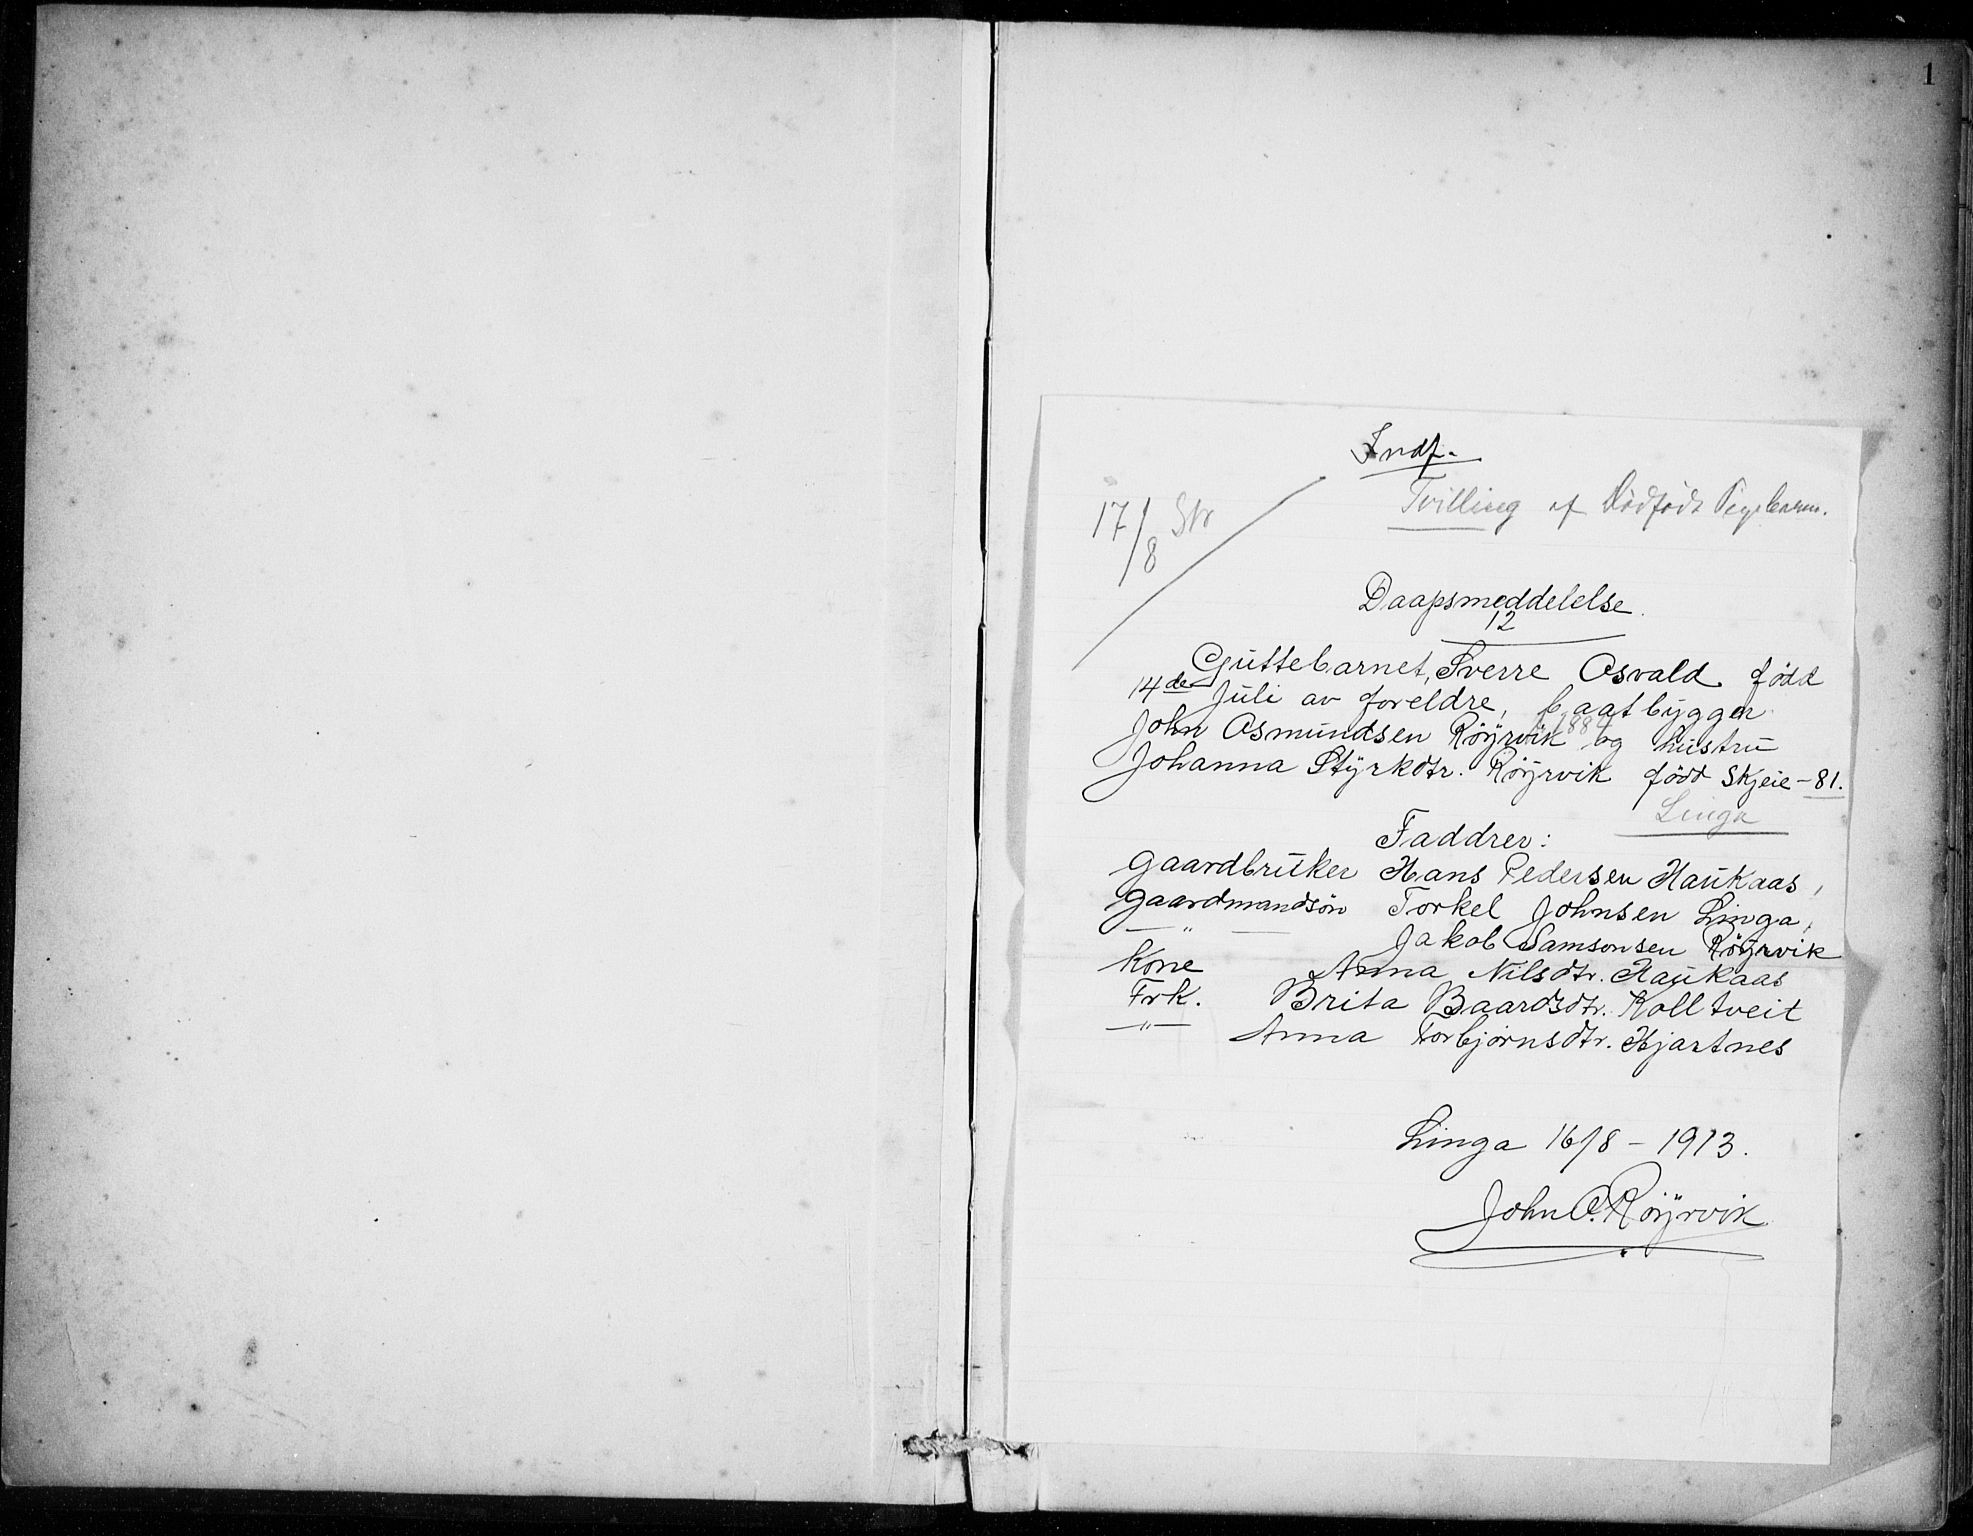 1
Indf.
Tvilling af dødfødt Pigebarn.
17/8 Str
Daapsmeddelelse.
12
Guttebarnet, Sverre Osvald född
14de Juli av foreldre, baatbygger
John Osmundsen Röÿrvik 1884 og hustru
Johanna Styrkdtr. Röÿrvik född Skjeie - 81.
Linga
Faddrer:
Gaardbruker Hans Pedersen Haukaas,
Gaardmandsön Torkel Johnsen Linga,
— " — Jakob Samsonsen Röÿrvik
Kone Anna Nilsdtr. Haukaas
Frk. Brita Baardsdtr. Kolltveit
— " — Anna Torbjörnsdtr. Hjartnes
Linga 16/8 - 1913.
John O. Röÿrvik